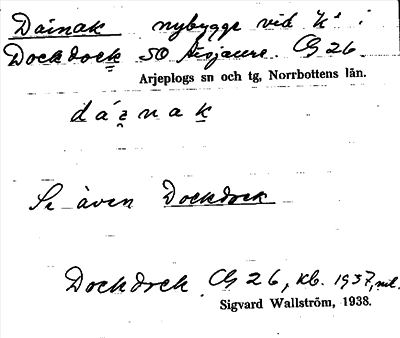 Dainak nybygge vid
Dockdock SO CG 26.
Arjeplogs sn och tg, Norrbottens län.
Se även Dockdock
Dockdock. CG 26, kb. 1937,
Sigvard Wallström, 1938.